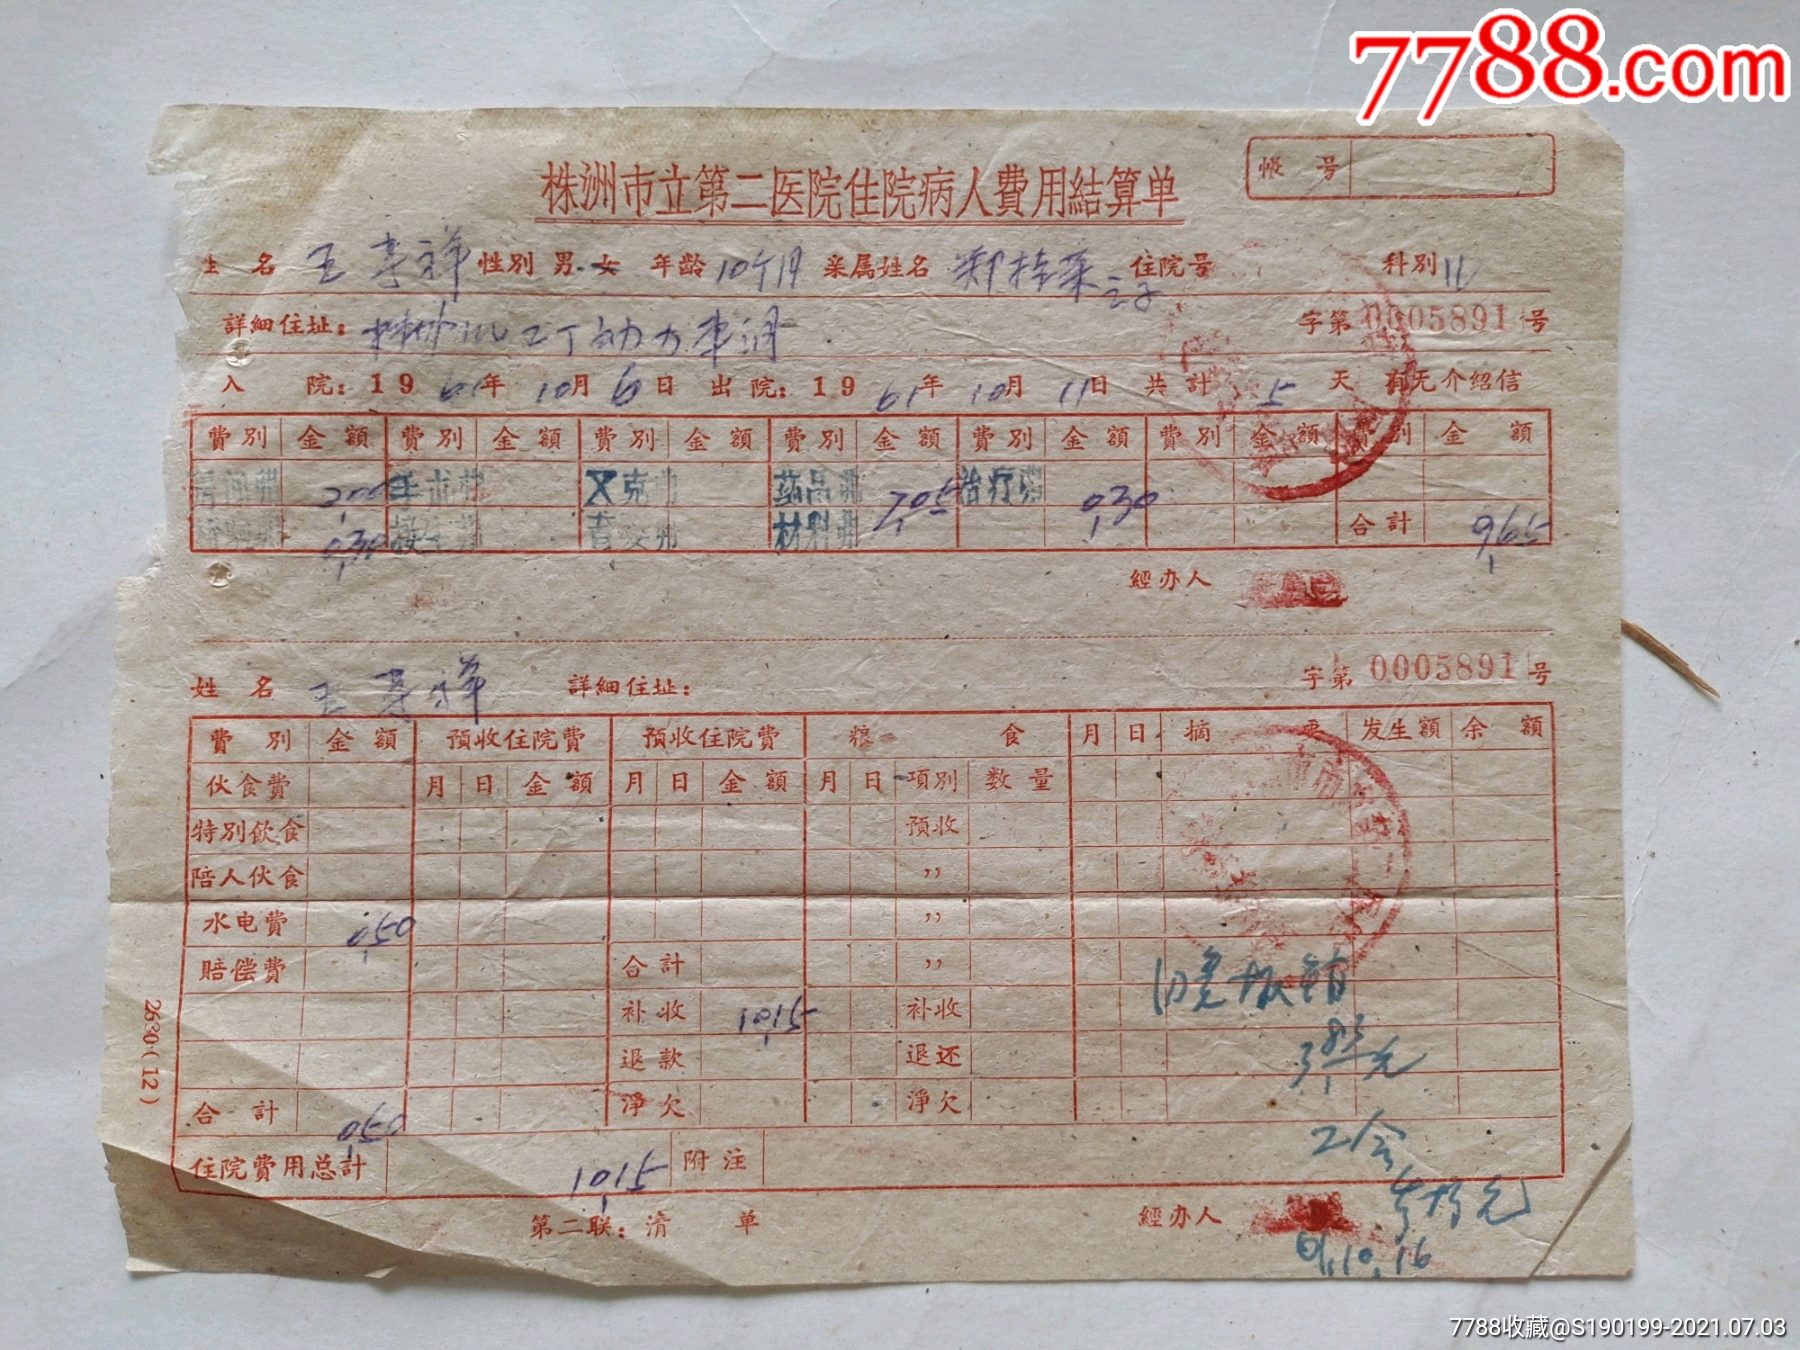 7788.com
帳 号
株洲市立第二医院住院病人費用結算单
姓 名 王寿祥 性別 男 女 年齢 10个月 亲属姓名 郑桂 住院号 科別 儿
詳細住址: 字第 0005891 号
入 院: 1961年 10月 6日 出院: 1961年 10月 11日 共計 5 天 有无介紹信
費別 金額 費別 金額 費別 金額 費別 金額 費別 金額 費別 金額 費別 金額
2,00 手术 X克 药品 7,05 治疗費 0,30
0,30 接生 材料 合計 9,65
經办人
姓 名 王寿祥 詳細住址: 字第 0005891 号
費 別 金額 預收住院費 預收住院費 粮 食 月 日 摘 要 发生額 余 額
伙食費 月 日 金額 月 日 金額 月 日 項別 数量
特別飲食 預收
陪人伙食 〃
水电費 0,50 〃
賠偿費 合計 〃
补收 10,15 补收
退款 退还
合 計 0,50 淨欠 淨欠
工会
住院費用总計 10,15 附注
第二联: 清 单 經办人
61.10.16
2630(12)
7788收藏@S190199-2021.07.03